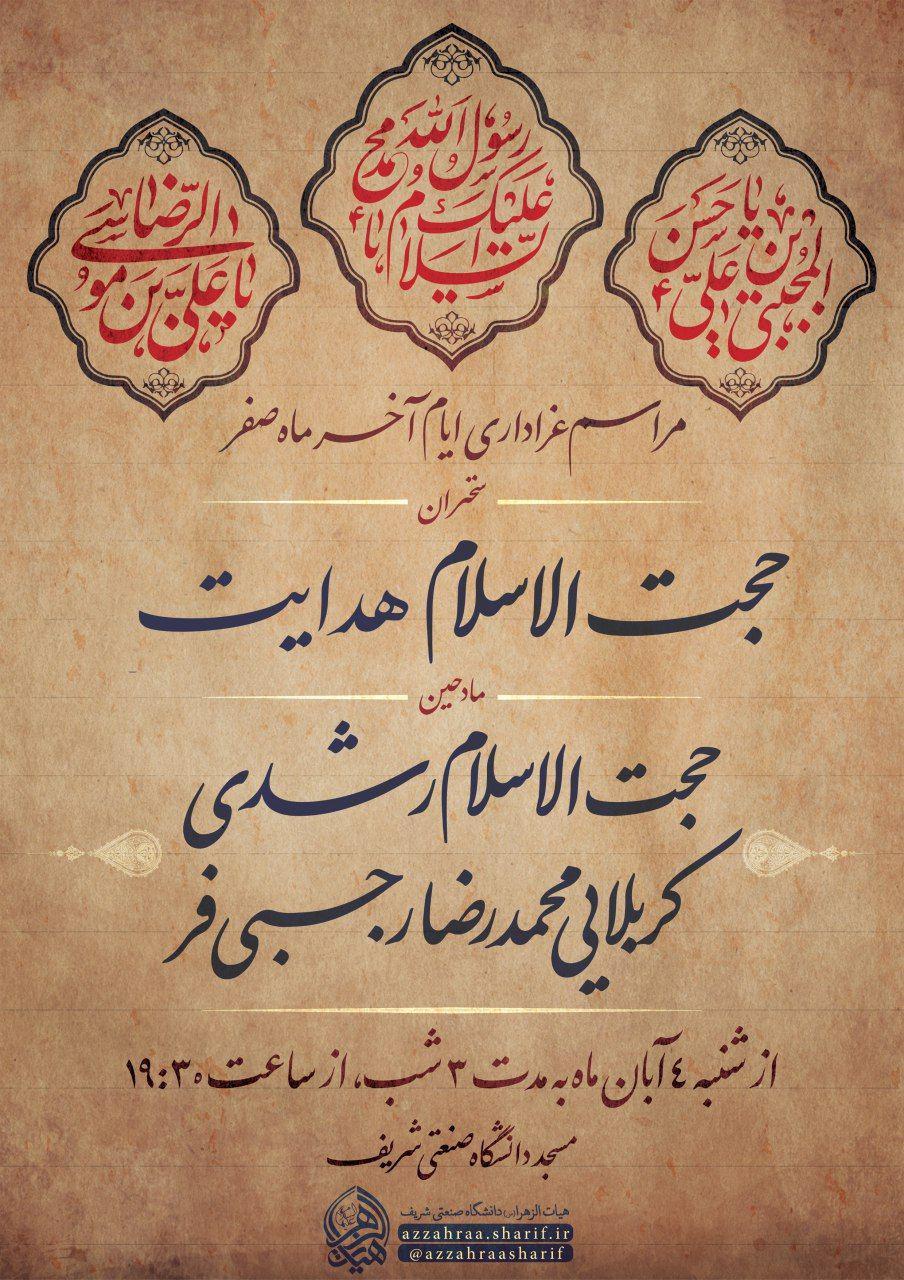 یا حسن بن علی المجتبی
السلام علیک یا رسول الله محمد
یا علی بن موسی الرضا
مراسم عزاداری ایام آخر ماه صفر
سخنران
حجت الاسلام هدایت
مادحین
حجت الاسلام رشدی
کربلایی محمدرضا رجبی فر
از شنبه ٤ آبان ماه به مدت ٣ شب، از ساعت ١٩:٣٠
مسجد دانشگاه صنعتی شریف
هیات الزهرا(س) دانشگاه صنعتی شریف
azzahraa.sharif.ir
@azzahraasharif